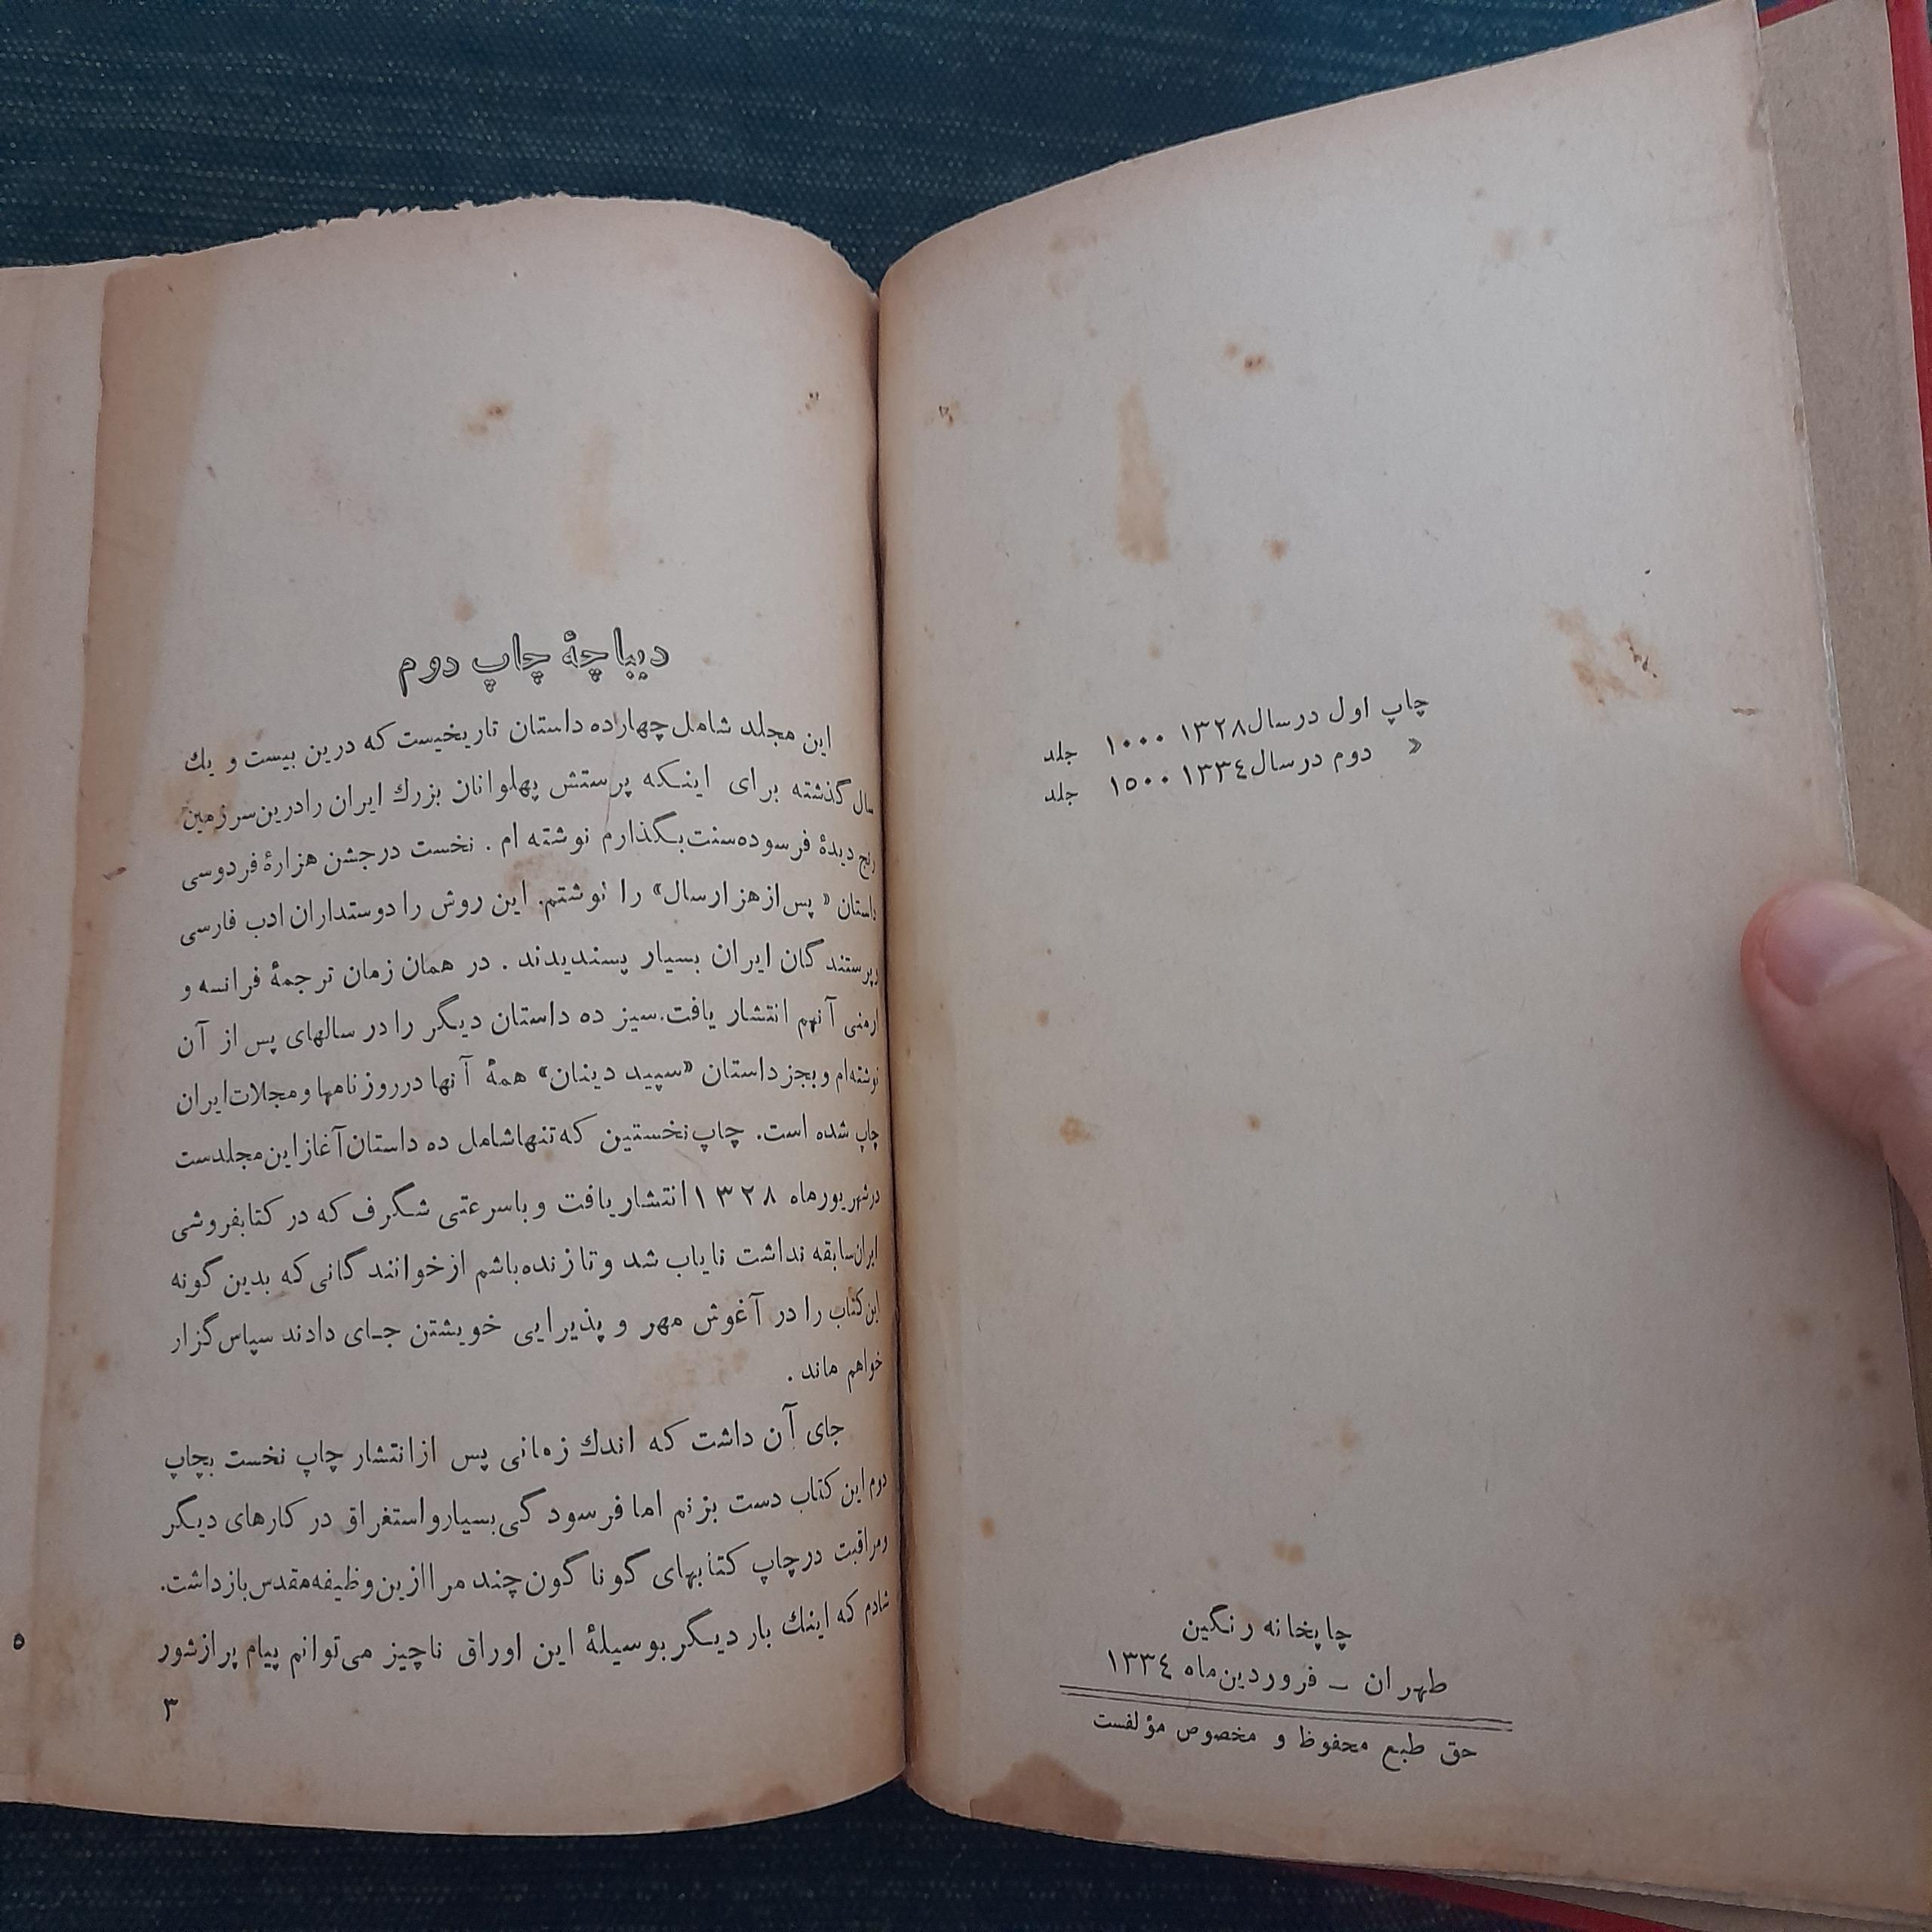 چاپ اول در سال ۱۳۲۸ ۱۰۰۰ جلد
« دوم در سال ۱۳۳٤ ۱۵۰۰ جلد
چاپخانه رنگین
طهران – فروردین ماه ۱۳۳٤
حق طبع محفوظ و مخصوص مؤلفست
دیباچهٔ چاپ دوم
این مجلد شامل چهارده داستان تاریخیست که درین بیست و یك
سال گذشته برای اینکه پرستش پهلوانان بزرك ایران را درین سرزمین
رنج دیدهٔ فرسوده سنت بگذارم نوشته ام . نخست در جشن هزارهٔ فردوسی
داستان « پس از هزار سال» را نوشتم. این روش را دوستداران ادب فارسی
و پرستندگان ایران بسیار پسندیدند . در همان زمان ترجمهٔ فرانسه و
ارمنی آنهم انتشار یافت. سیزده داستان دیگر را در سالهای پس از آن
نوشته‌ام و بجز داستان «سپید دینان» همهٔ آنها در روزنامها و مجلات ایران
چاپ شده است. چاپ نخستین که تنها شامل ده داستان آغاز این مجلدست
در شهریور ماه ۱۳۲۸ انتشار یافت و با سرعتی شگرف که در کتابفروشی
ایران سابقه نداشت نایاب شد و تا زنده باشم از خوانندگانی که بدین گونه
این کتاب را در آغوش مهر و پذیرایی خویشتن جای دادند سپاس گزار
خواهم ماند .
جای آن داشت که اندك زمانی پس از انتشار چاپ نخست بچاپ
دوم این کتاب دست بزنم اما فرسودگی بسیار و استغراق در کارهای دیگر
و مراقبت در چاپ کتابهای گوناگون چند مرا ازین وظیفه مقدس بازداشت.
شادم که اینك بار دیگر بوسیلهٔ این اوراق ناچیز می‌توانم پیام پر از شور
۳
۵